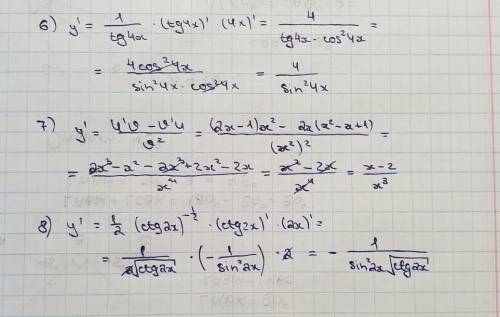 6) y' = 1/tg4x · (tg4x)' (4x)' = 4/(tg4x · cos²4x) =
= 4cos²4x/(sin²4x · cos²4x) = 4/sin²4x
7) y' = (u'v - v'u)/v² = ((2x-1)x² - 2x(x²-x+1))/(x²)² =
= (2x³ - x² - 2x³ + 2x² - 2x)/x⁴ = (x² - 2x)/x⁴ = (x-2)/x³
8) y' = 1/2 (ctg2x)^(-1/2) · (ctg2x)' · (2x)' =
= 1/(2√ctg2x) · (-1/sin²2x) · 2 = - 1/(sin²2x √ctg2x)